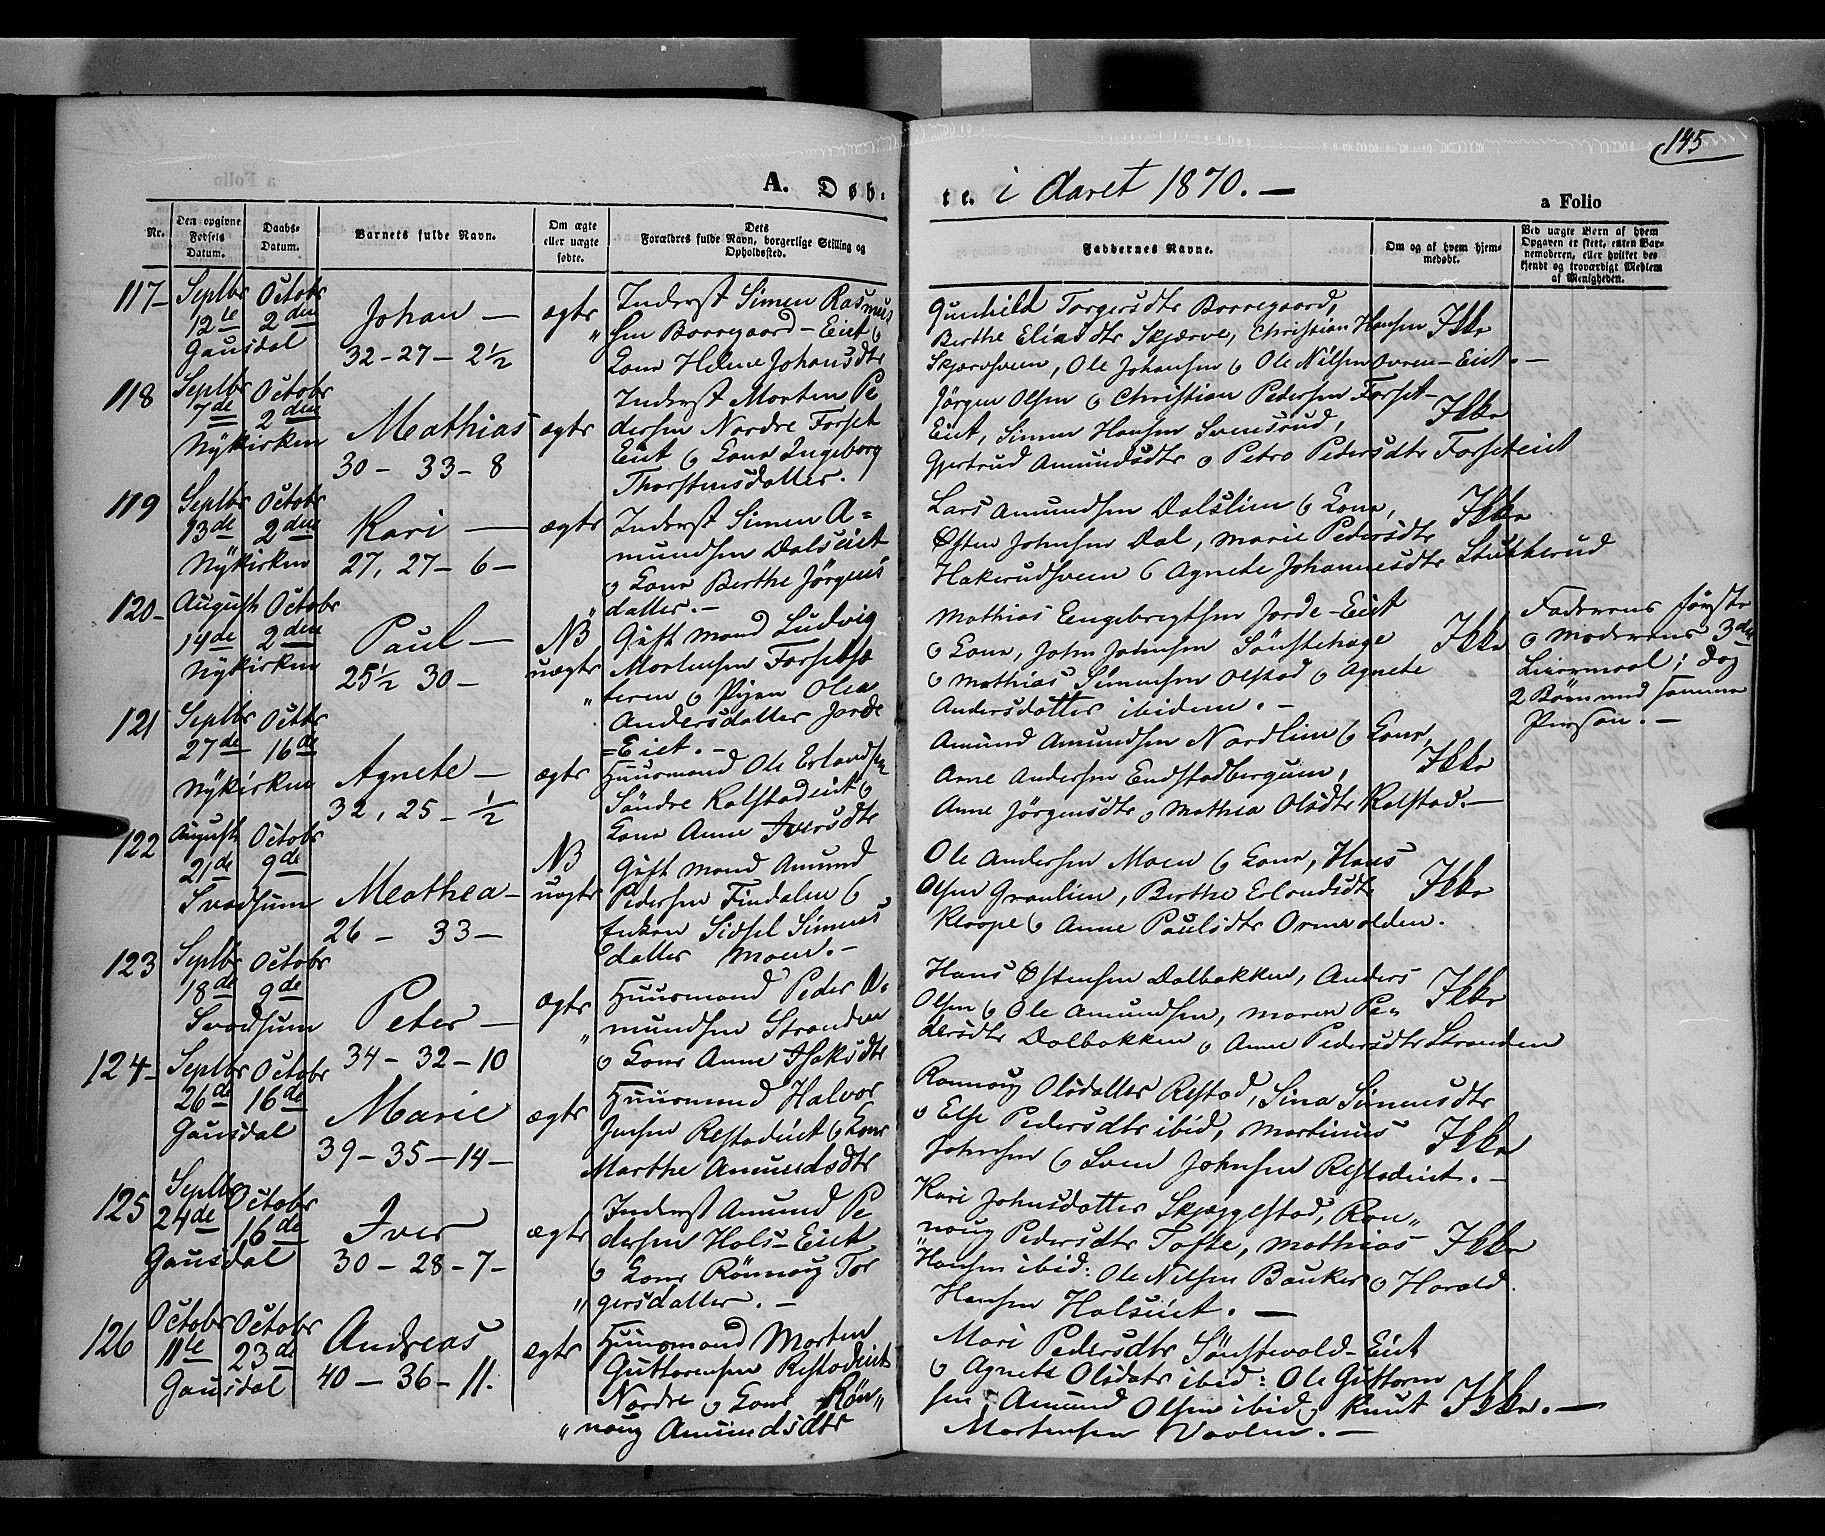 145
A. Døb-
te. i Aaret 1870. —
a Folio
Nr.
Den opgivne Fødsels Datum.
Daabs-Datum.
Barnets fulde Navn.
Om ægte eller uægte fødte.
Dets Forældres fulde Navn, borgerlige Stilling og Opholdssted.
Faddernes Navne.
Om og af hvem hjemmedøbt.
Ved uægte Børn af hvem Opgaven er skeet, enten Barnemoderen, eller hvilket bekjendt og troværdigt Medlem af Menigheden.
117- Septbr 12te Octobr 2den Gausdal
Johan —
32-27-2½
ægte
Inderst Simen Rasmus
sen Borregaard-Eiet &
Kone Helene Johansdtr
Gunhild Torgersdtr Borregaard,
Berthe Eliasdtr Skjærve, Christian Hansen
Skjærvsveen, Ole Johansen & Ole Nilsen Øvren-Eiet. —
Ikke
118 Septbr 7de Octobr 2den Nykirken
Mathias
30 - 33 - 8
ægte
Inderst Morten Pe
dersen Nordre Forset
Eiet & Kone Ingeborg
Thorstensdatter.
Jørgen Olsen & Christian Pedersen Forset-
Eiet, Simen Hansen Svensrud,
Gjertrud Amundsdtr & Petro Pedersdtr Forseteiet
Ikke
119 Septbr 13de Octobr 2den Nykirken
Kari —
27, 27 - 6 -
ægte
Inderst Simen A=
mundsen Dalseiet
& Kone Berthe Jørgens
datter. -
Lars Amundsen Dalslien & Kone,
Østen Johnsen Dal, Marie Pedersdtr
Hakerudsveen & Agnete Johannesdtr Stubberud
Ikke
120- August 14de Octobr 2den Nykirken
Paul —
25½ 30 -
NB
uægte
Gift Mand Ludvig
Mortensen Forsetsæ
teren & Pigen Olea
Andersdatter Jorde
=Eiet. -
Mathias Engebregtsen Jorde-Eiet
& Kone, John Johnsen Sønstehage
& Mathias Simensen Olstad & Agnete
Andersdatter ibidem. -
Ikke
Faderens første
& Moderens 3die
Leiermaal; dog
2 Børn med samme
Person. -
121 Septbr 27de Octbr 16de Nykirken
Agnete —
32, 25 - ½
ægte
Huusmand Ole Erlandsen
Søndre Kalstadeiet &
Kone Anne Iversdtr
Amund Amundsen Nordlien & Kone,
Arne Andersen Endstadbergum,
Anne Jørgensdtr & Mathea Olsdtr Kalstad. —
Ikke
122 August 21de Octobr 9de Svadsum
Mathea -
26 - 33 -
NB
uægte
Gift Mand Amund
Pedersen Findalen &
Enken Sidsel Simens
datter Moen. -
Ole Andersen Moen & Kone, Hans
Olsen Granlien, Berthe Erlandsdtr
Kloope & Anne Paulsdtr
Ikke
123 Septbr 18de Octobr 9de Svadsum
Peter —
34 - 32 - 10
ægte
Huusmand Peder A
mundsen Stranden
& Kone Anne Isaksdtr
Hans Østensen Dalbakken, Anders
Olsen & Ole Amundsen, Maren Pe„
dersdtr Dalbakken & Anne Pedersdtr Stranden
Ikke
124- Septbr 26de Octobr 16de Gausdal
Marie
39 - 35 - 14 -
ægte
Huusmand Halvor
Jensen Refstadeiet & Kone
Marthe Amundsdtr
Rønnoug Olsdatter Refstad, Sina Simensdtr
& Else Pedersdtr ibid, Martinus
Johnsen & Sven Johnsen Refstadeiet. -
Ikke
125 Septbr 24de Octobr 16de Gausdal
Iver
30 - 28 - 7 -
ægte
Inderst Amund Pe
dersen Hols-Eiet
& Kone Rønnoug Tor
gersdatter. -
Kari Johnsdatter Skjæggestad, Røn„
noug Pedersdtr Tofte, Mathias
Hansen ibid: Ole Nilsen Bauker & Harald
Hansen Holseiet. —
Ikke
126 Octobr 11te Octobr 23de Gausdal
Andreas
40 - 36 - 11.
ægte
Huusmand Morten
Guttormsen Refstadeiet
Nordre & Kone Røn„
„noug Amundsdtr
Mari Pedersdtr Sønstevold-Eiet
& Agnete Olsdatr ibid: Ole Guttorm
sen Amund Olsen ibid & Knut
Mortensen
Ikke. —